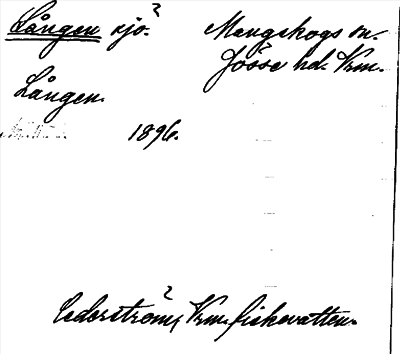 Lången sjö.? Mangskogs sn.
Jösse hd. Vrm.
Lången.
1896.
Cederström, Vrm. fiskevatten.